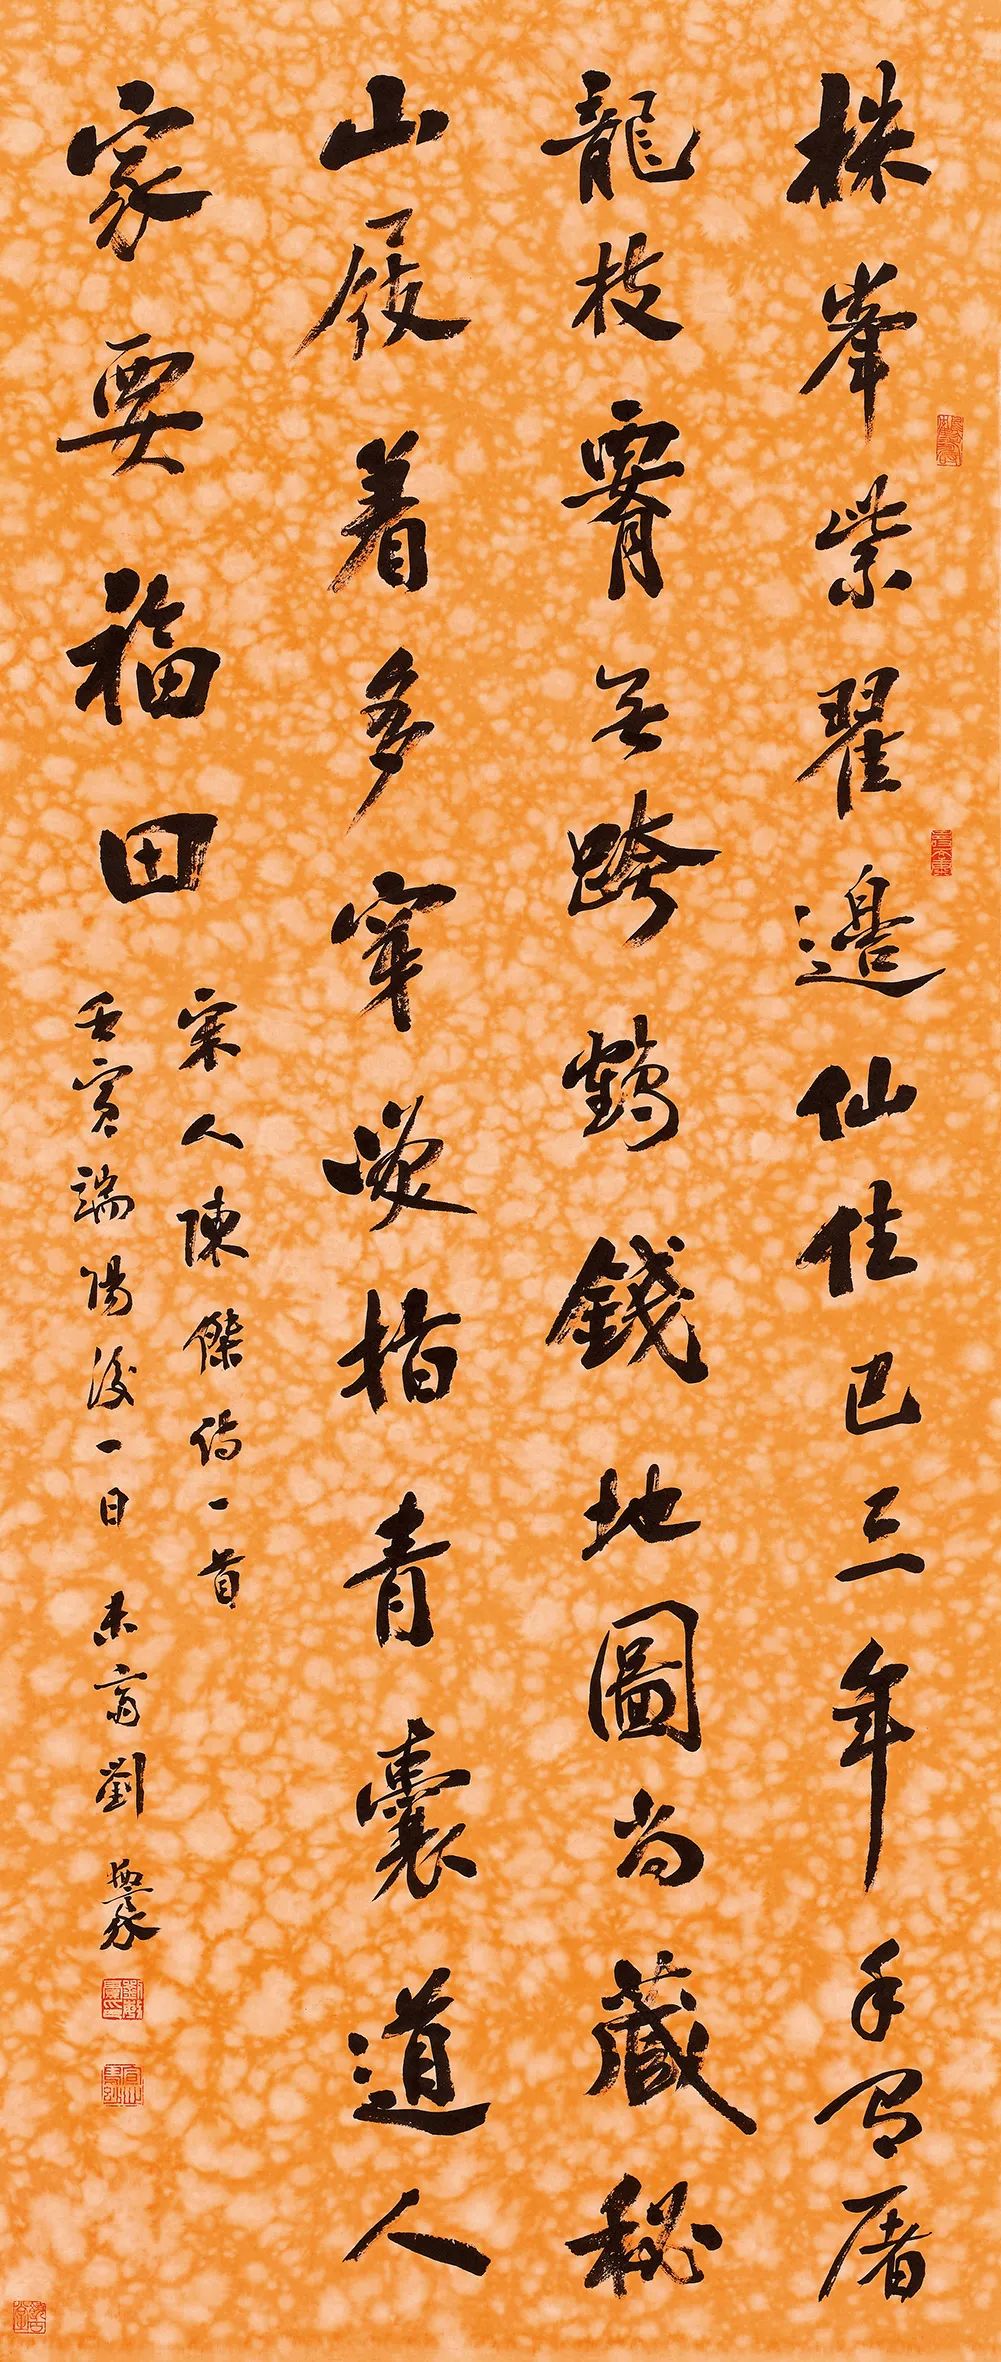 株峯紫翟邉仙佳已三年手有屠
龍枝霄無跨鶴錢地圖尚藏秘
山屐着多穿笑指青囊道人
家要福田
宋人陳傑詩一首
壬寅端陽後一日未齋劉